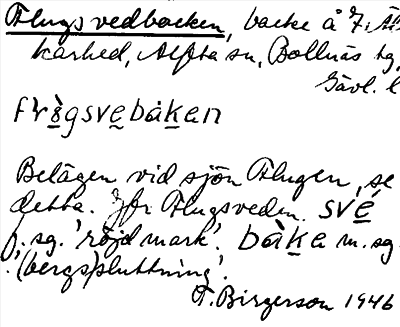 Flugsvedbacken, backe å
karhed, Alfta sn, Bollnäs tg,
Gävl. l
Belägen vid sjön Flugen, se
detta. Jfr Flugsveden. své
f. sg. 'röjd mark'. båke m. sg.
'(bergs)sluttning'.
T. Birgerson 1946